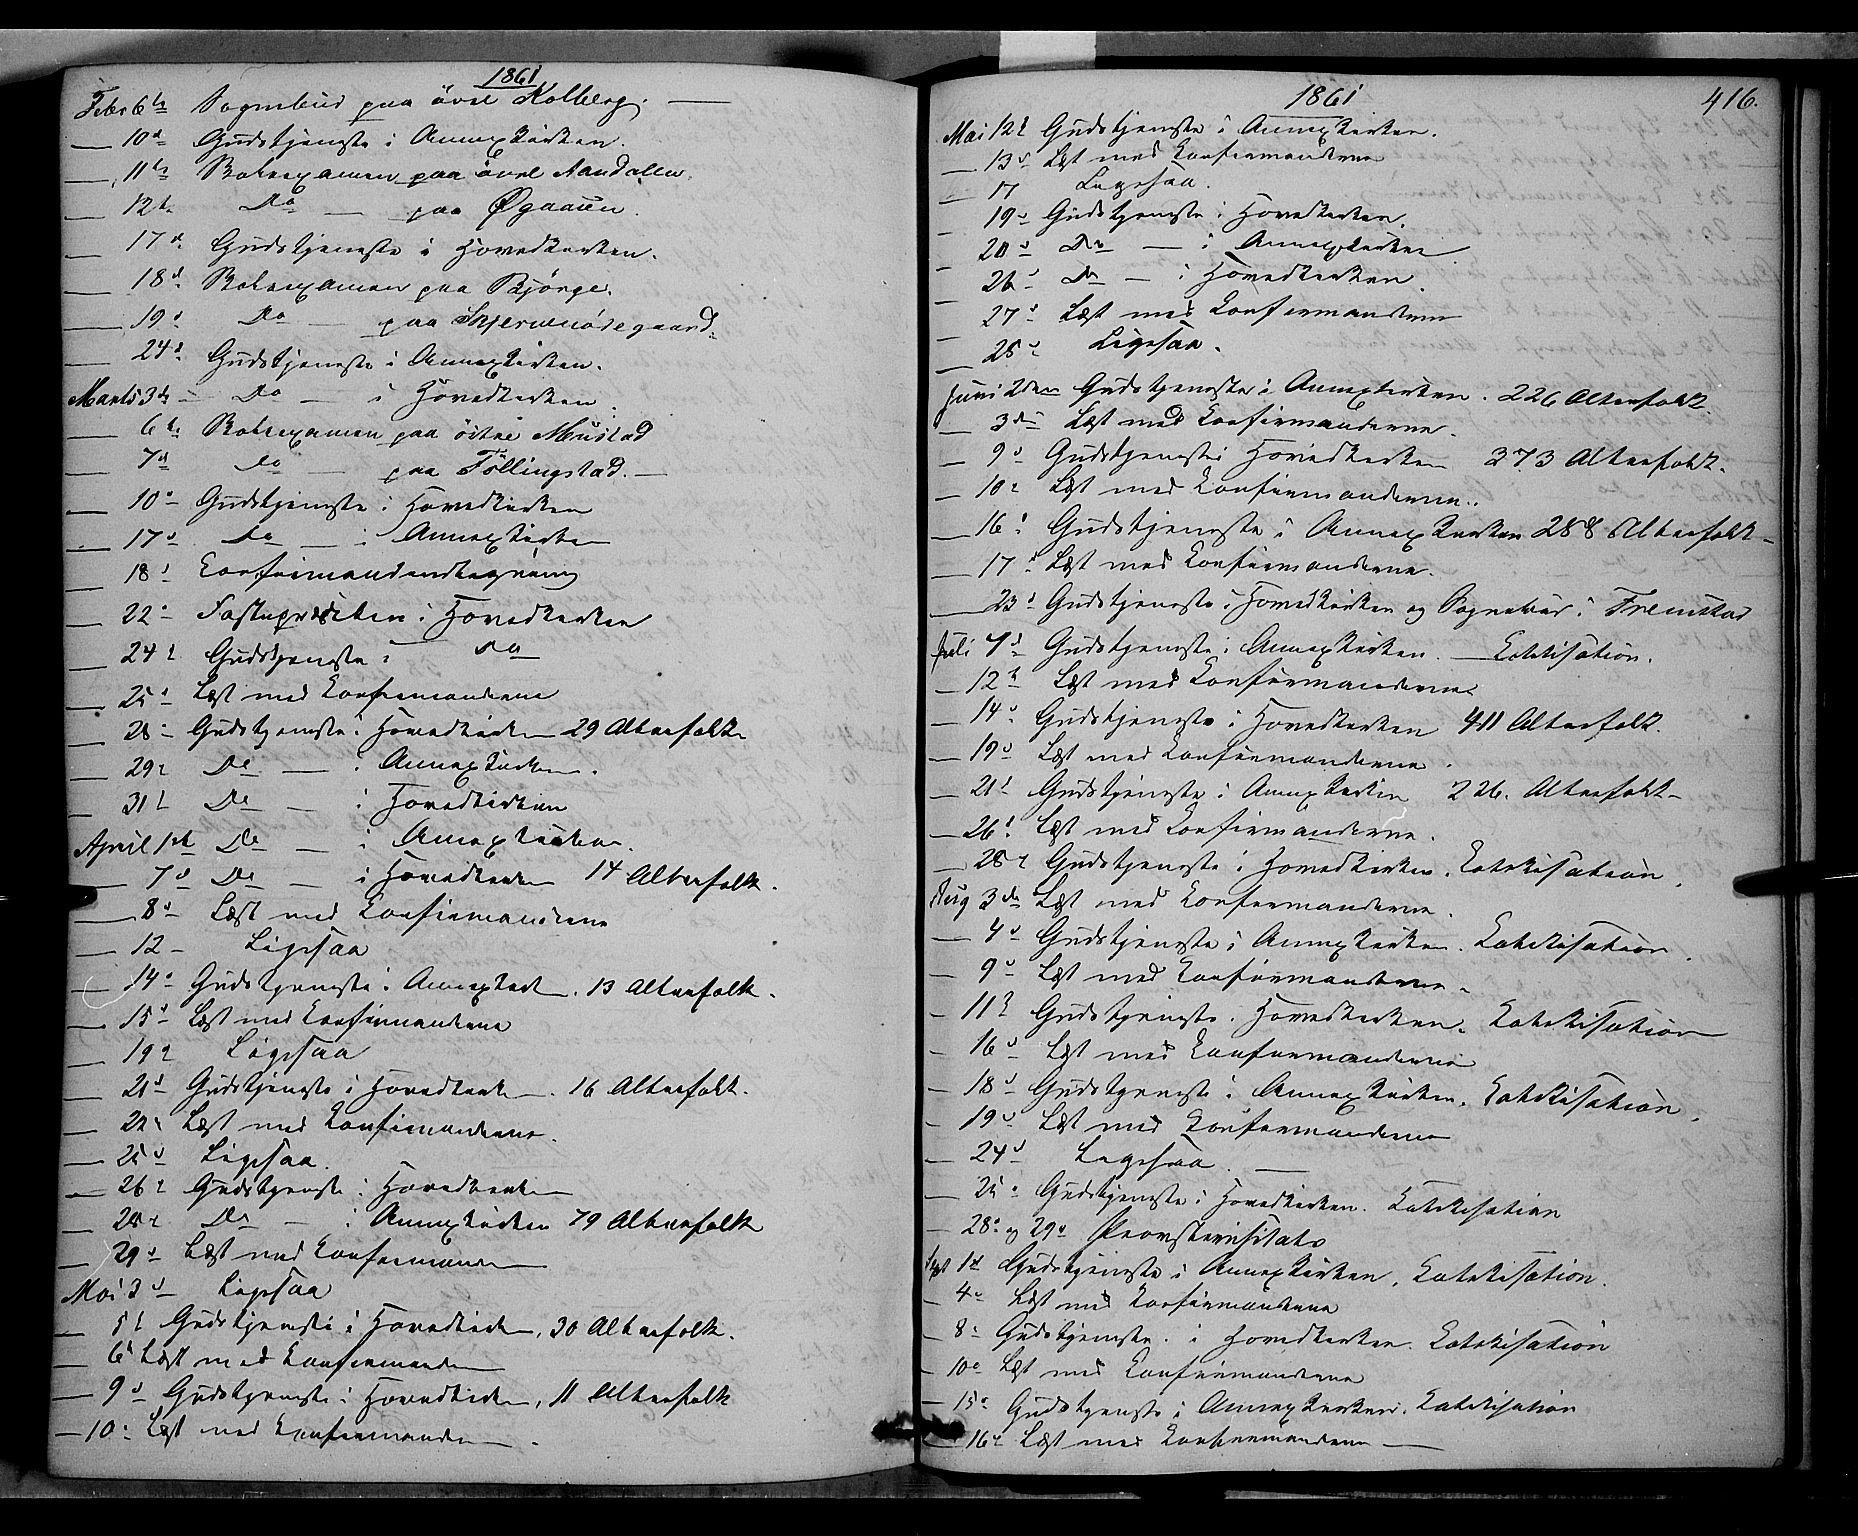 1861
Febr 6te Sognebud paa övre Kolberg. —
— 10de Gudstjeneste i Annexkirken.
— 11te Rodeexamen paa övre Aandalen.
— 12te Do — paa Øgaarden.
— 17d Gudstjeneste i Hovedkirken.
— 18d Rodeexamen paa Bjørge.
— 19d Do — paa Skjervenødegaard.
— 24d Gudstjeneste i Annexkirken.
Marts 3die Do — i Hovedkirken
— 6te Rodeexamen paa östre Mustad
— 7d Do — paa Föllingstad. —
— 10d Gudstjeneste i Hovedkirken
— 17d Do — i Annexkirken
— 18d
— 22d Fasteprædiken i Hovedkirken
— 24d Gudstjeneste i Do
— 25d Læst med Konfirmanderne
— 28d Gudstjeneste i Hovedkirken 29 Altersfolk
— 29d Do — i Annexkirken.
— 31d Do — i Hovedkirken
April 1ste Do — i Annexkirken.
— 7d Do — i Hovedkirken 14 Altersfolk.
— 8d Læst med Konfirmanderne
— 12 — Ligesaa
— 14d Gudstjeneste i Annexkirk. 13 Altersfolk.
— 15d Læst med Konfirmanderne
— 19d Ligesaa
— 21d Gudstjeneste i Hovedkirk. 16 Altersfolk.
— 22d Læst med Konfirmanderne.
— 25d Ligesaa.
— 26d Gudstjeneste i Hovedkirken
— 28d Do — i Annexkirken 79 Altersfolk
— 29d Læst med Konfirmanderne
Mai 3d Ligesaa
— 5d Gudstjeneste i Hovedkirken, 30 Altersfolk.
— 6d Læst med Konfirmanden
— 9d Gudstjeneste i Hovedkirken, 11 Altersfolk
— 10d Læst med Konfirmanden.
1861 416.
Mai 12d Gudstjeneste i Annexkirken.
— 13d Læst med Konfirmanderne
— 17 Ligesaa.
— 19d Gudstjeneste i Hovedkirken.
— 20d Do — i Annexkirken
— 26d Do — i Hovedkirken.
— 27d Læst med Konfirmanderne
— 28d Ligesaa.
Juni 2den Gudstjeneste i Annexkirken. 226 Altersfolk.
— 3die Læst med Konfirmanderne.
— 9d Gudstjeneste i Hovedkirken 373 Altersfolk.
— 10d Læst med Konfirmanderne.
— 16d Gudstjeneste i Annexkirken 288 Altersfolk —
— 17d Læst med Konfirmanderne.
— 23d Gudstjeneste i Hovedkirken og Sognebud i Fremstad
Juli 7d Gudstjeneste i Annexkirken. — Katekisation.
— 12te Læst med Konfirmanderne.
— 14d Gudstjeneste i Hovedkirken 411 Altersfolk.
— 19d Læst med Konfirmanderne.
— 21d Gudstjeneste i Annexkirken 226. Altersfolk —
— 26d Læst med Konfirmanderne.
— 28d Gudstjeneste i Hovedkirken. Katekisation.
Aug 3die Læst med Konfirmanderne.
— 4d Gudstjeneste i Annexkirken. Katekisation.
— 9d Læst med Konfirmanderne.
— 11d Gudstjeneste i Hovedkirken. Katekisation
— 16d Læst med Konfirmanderne
— 18d Gudstjeneste i Annexkirken. Katekisation.
— 19d Læst med Konfirmanderne
— 24d Ligesaa. —
— 25d Gudstjeneste i Hovedkirken. Katekisation
— 28d og 29d Provstevisitats
Sept 1d Gudstjeneste i Annexkirken. Katekisation.
— 4d Læst med Konfirmanderne
— 8d Gudstjeneste i Hovedkirken. Katekisation
— 10d Læst med Konfirmanderne
— 15d Gudstjeneste i Annexkirken. Katekisation
— 16d Læst med Konfirmanderne —